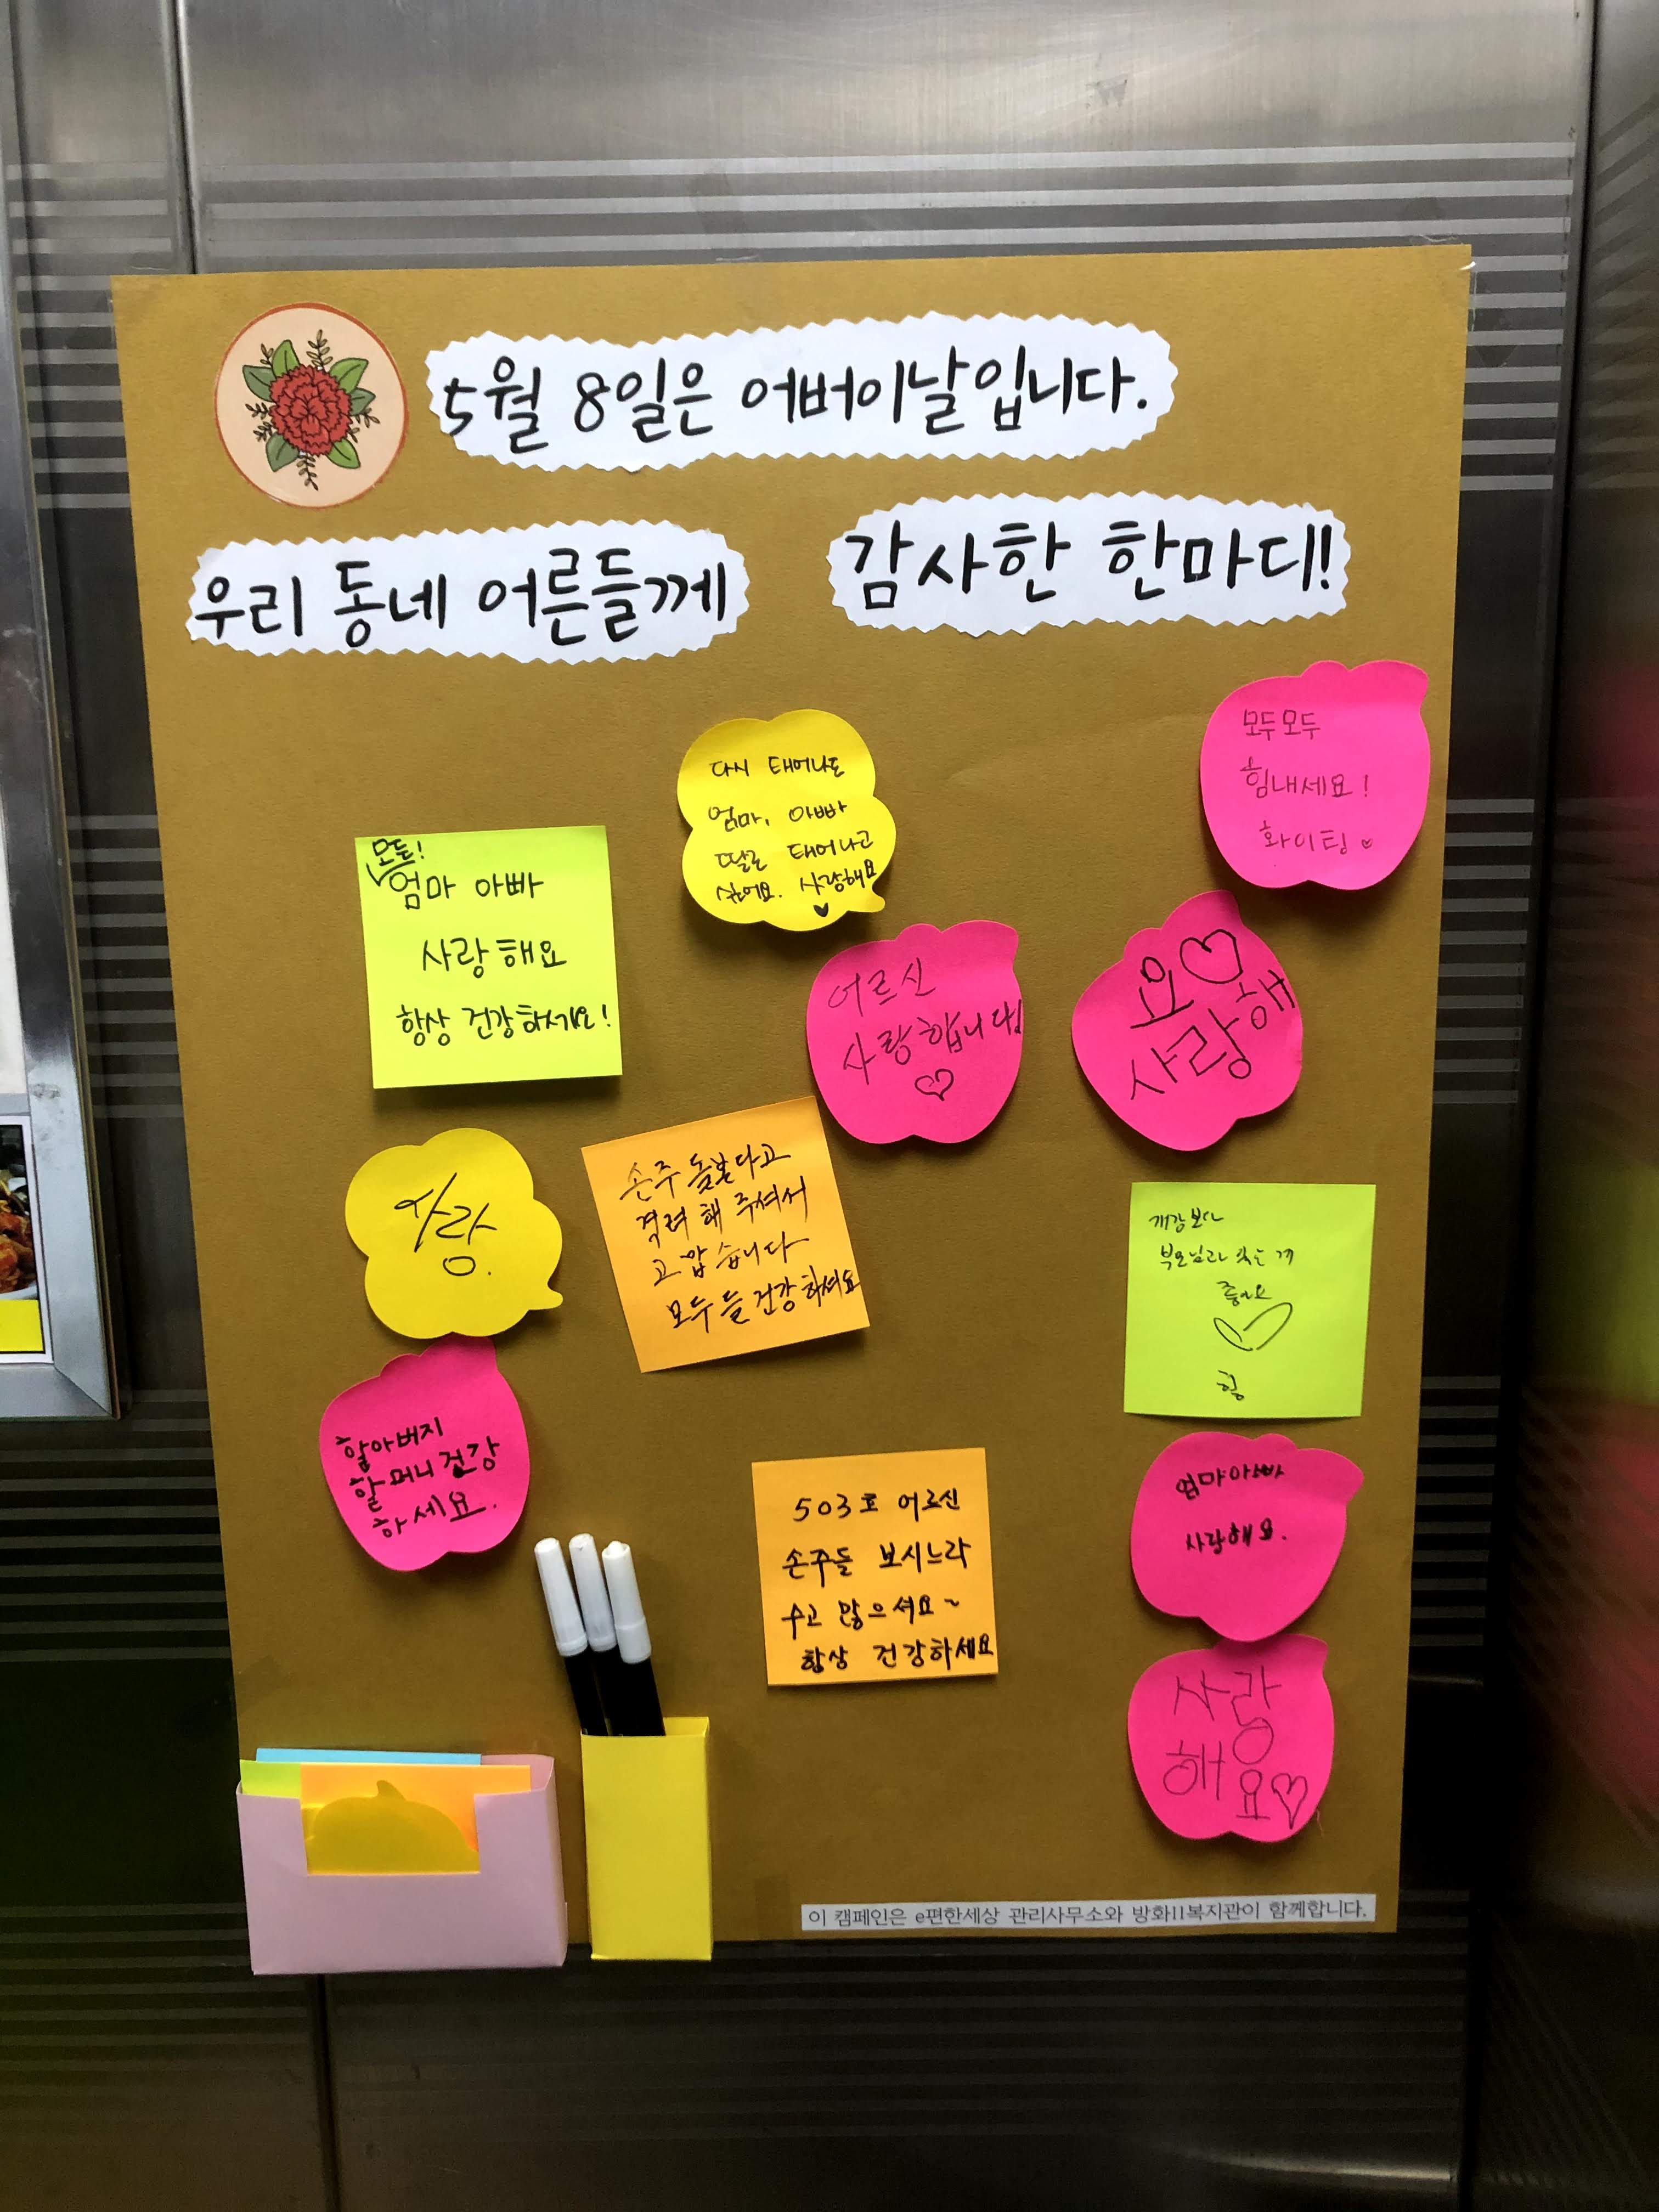 5월 8일은 어버이날입니다.
우리 동네 어른들께
감사한 한마디!
모두모두
힘내세요!
화이팅
다시 태어나도
엄마, 아빠
딸로 태어나고
싶어요. 사랑해요
모든!
엄마 아빠
사랑해요
항상 건강하세요!
어르신
사랑합니다!
요♡
사랑해
사랑.
손주 돌본다고
격려 해 주셔서
고맙습니다
모두들 건강하셔요
개강보다
부모님과 있는 게
좋아요
할아버지
할머니 건강
하세요.
503호 어르신
손주들 보시느라
수고 많으셔요~
항상 건강하세요
엄마아빠
사랑해요.
사랑
해요♡
이 캠페인은 e편한세상 관리사무소와 방화11복지관이 함께합니다.